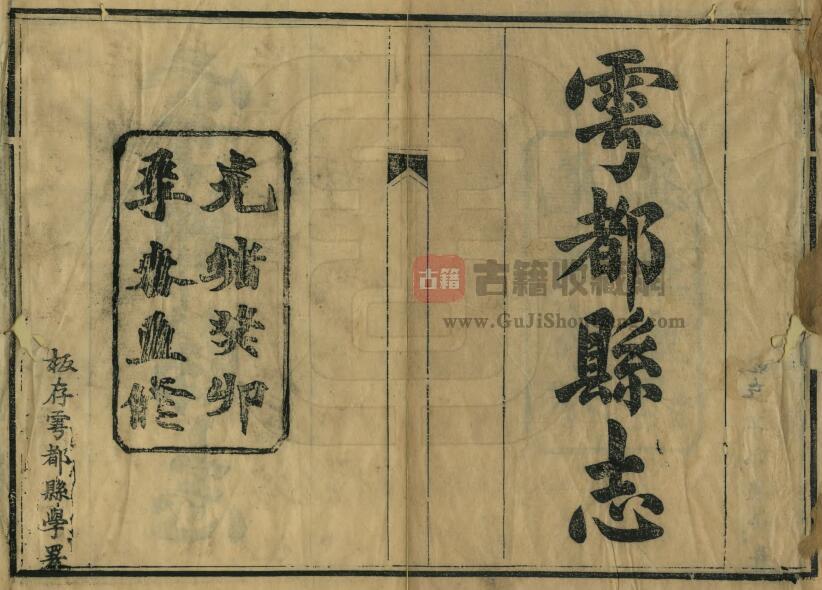 雩都縣志
光緒癸卯
年修
板存雩都縣學署
古籍
古籍收藏網
www.GuJiShouCang.com